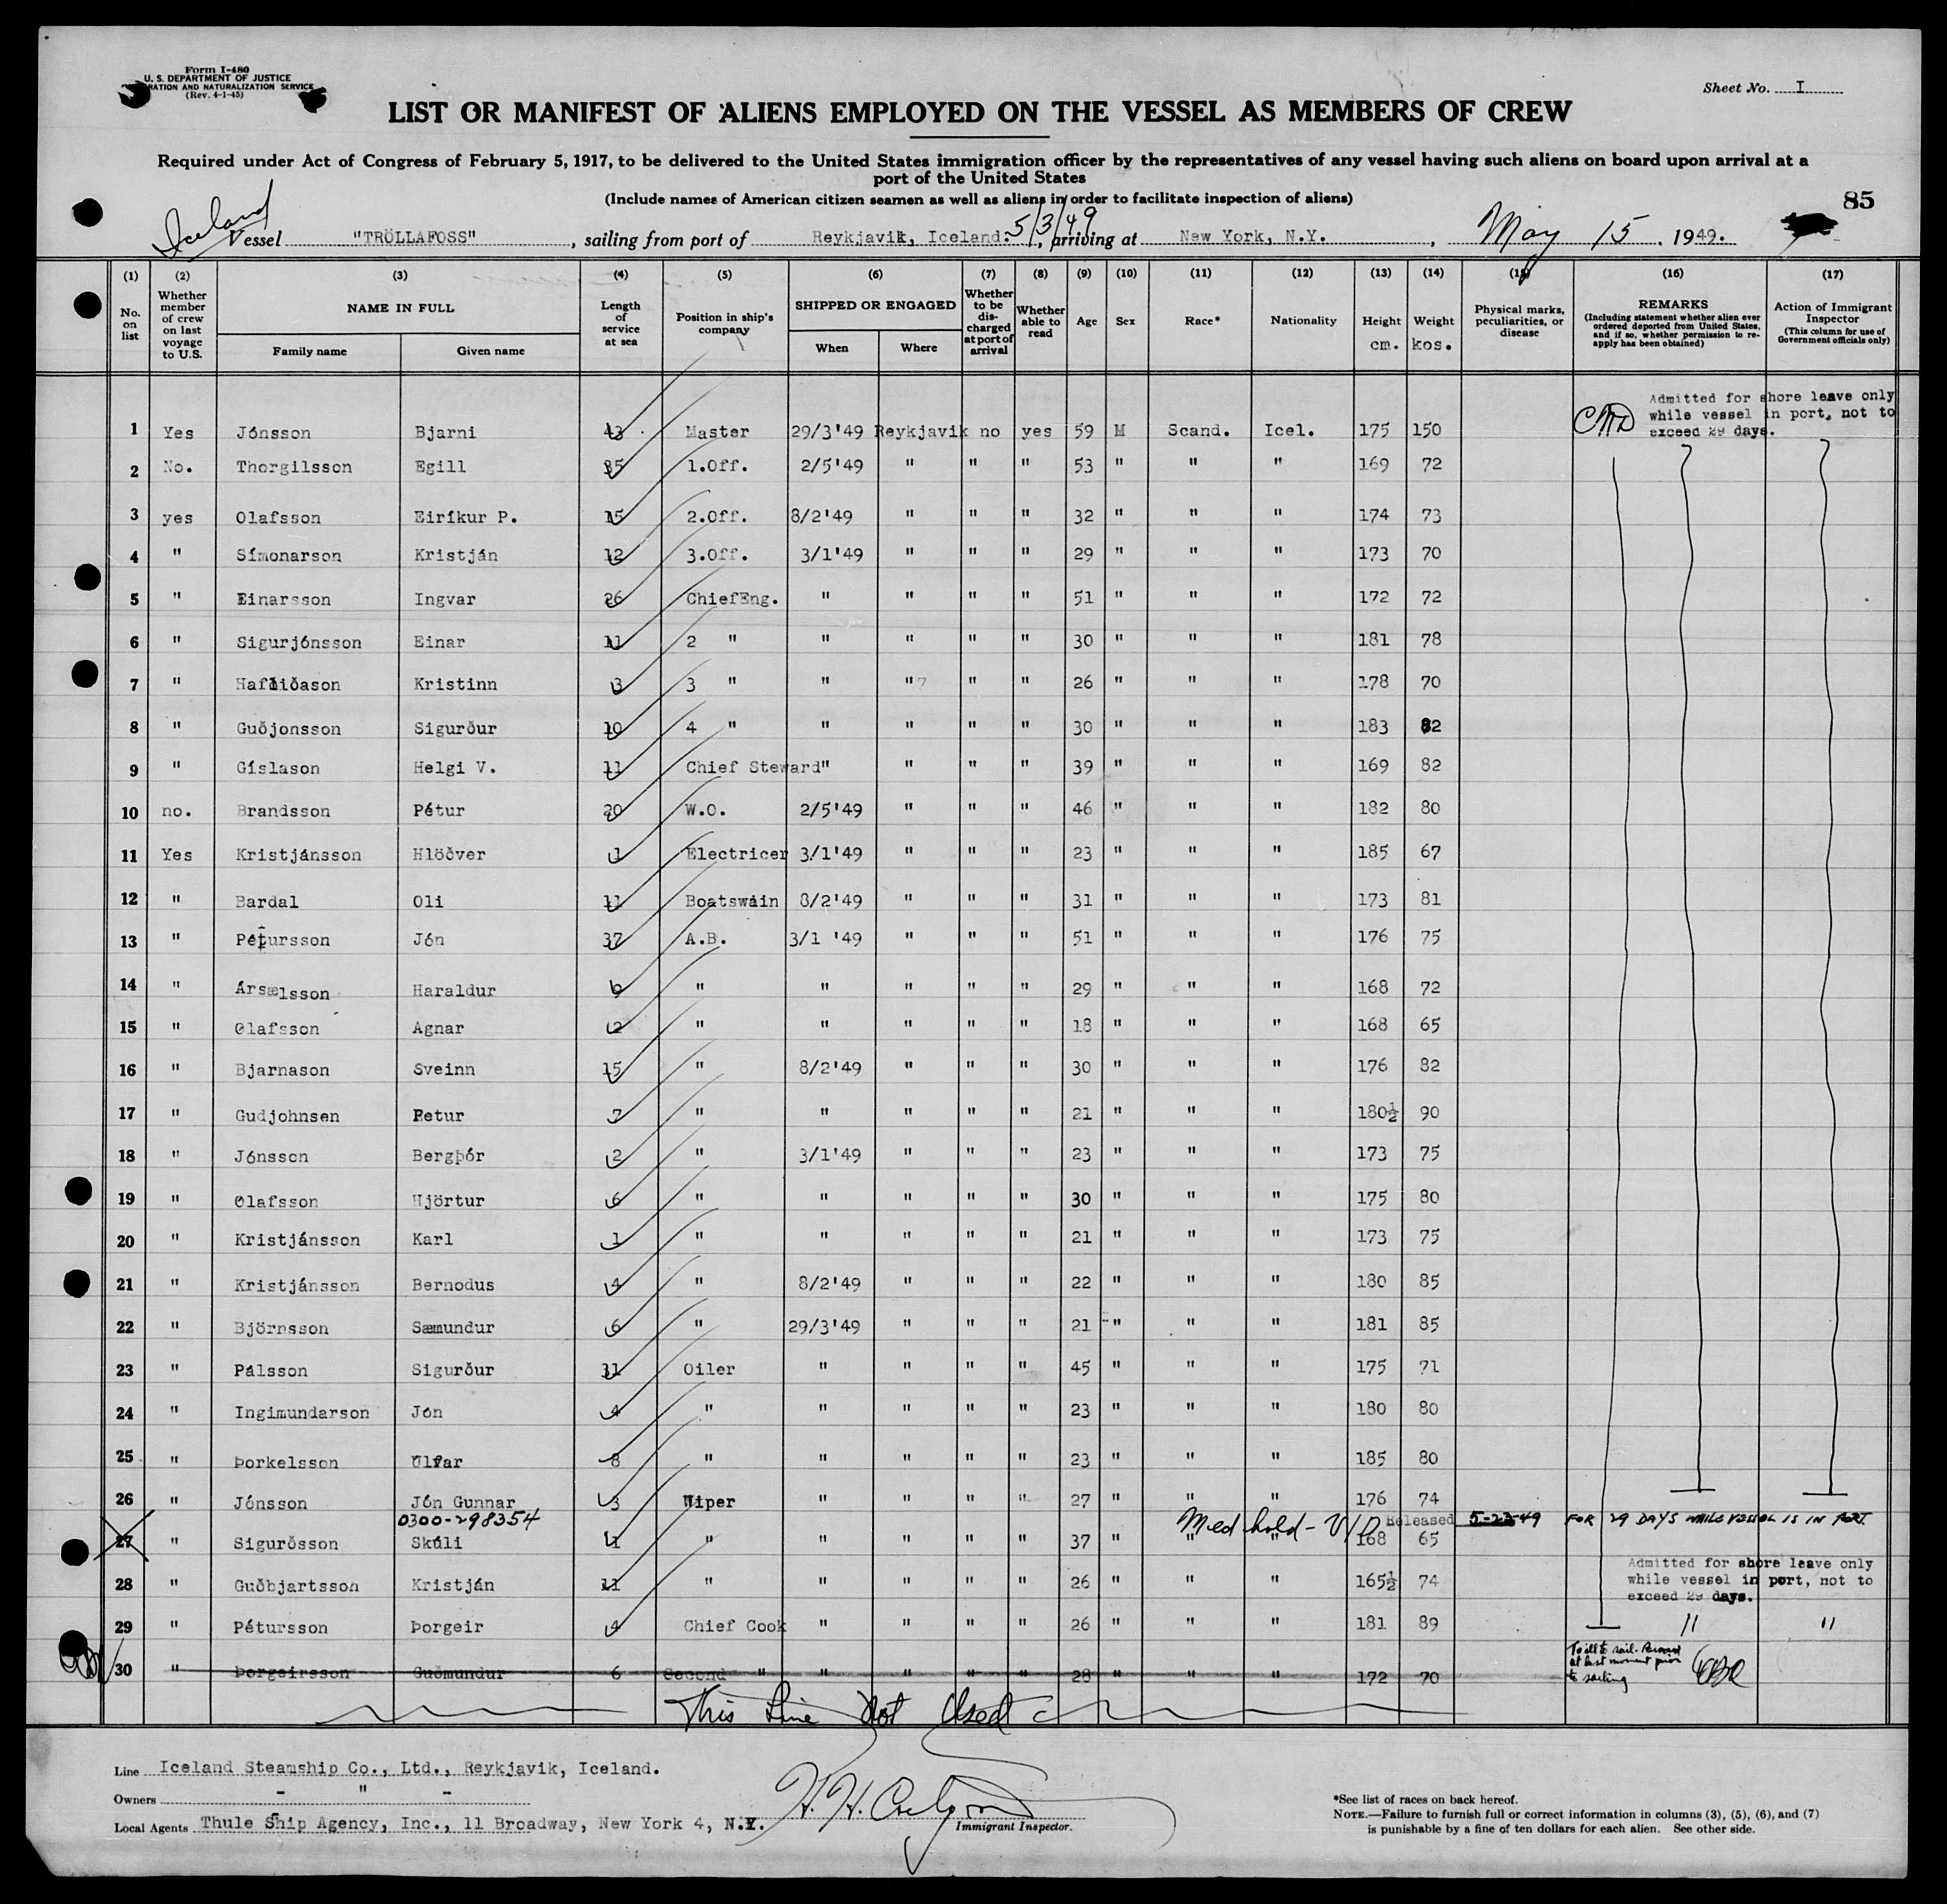 Form I-480
U. S. DEPARTMENT OF JUSTICE
RATION AND NATURALIZATION SERVICE
(Rev. 4-1-45)
Sheet No. I
LIST OR MANIFEST OF ALIENS EMPLOYED ON THE VESSEL AS MEMBERS OF CREW
Required under Act of Congress of February 5, 1917, to be delivered to the United States immigration officer by the representatives of any vessel having such aliens on board upon arrival at a
port of the United States
(Include names of American citizen seamen as well as aliens in order to facilitate inspection of aliens)
85
Iceland
5/3/49
Vessel "TRÖLLAFOSS", sailing from port of Reykjavik, Iceland:, arriving at New York, N.Y., May 15. 1949.
(1) (2) (3) (4) (5) (6) (7) (8) (9) (10) (11) (12) (13) (14) (15) (16) (17)
No. on list
Whether member of crew on last voyage to U.S.
NAME IN FULL
Family name Given name
Length of service at sea
Position in ship's company
SHIPPED OR ENGAGED
When Where
Whether to be discharged at port of arrival
Whether able to read
Age
Sex
Race*
Nationality
Height cm.
Weight kos.
Physical marks, peculiarities, or disease
REMARKS
(Including statement whether alien ever ordered deported from United States, and if so, whether permission to re-apply has been obtained)
Action of Immigrant Inspector
(This column for use of Government officials only)
Admitted for shore leave only
while vessel in port, not to
exceed 29 days.
1 Yes Jónsson Bjarni 43 Master 29/3'49 Reykjavik no yes 59 M Scand. Icel. 175 150
2 No. Thorgilsson Egill 35 1.Off. 2/5'49 " " " 53 " " " 169 72
3 yes Olafsson Eiríkur P. 15 2.Off. 8/2'49 " " " 32 " " " 174 73
4 " Símonarson Kristján 12 3.Off. 3/1'49 " " " 29 " " " 173 70
5 " Einarsson Ingvar 26 ChiefEng. " " " " 51 " " " 172 72
6 " Sigurjónsson Einar 11 2 " " " " " 30 " " " 181 78
7 " Hafliðason Kristinn 3 3 " " " " " 26 " " " 178 70
8 " Guðjonsson Sigurður 10 4 " " " " " 30 " " " 183 82
9 " Gíslason Helgi V. 11 Chief Steward" " " " 39 " " " 169 82
10 no. Brandsson Pétur 20 W.O. 2/5'49 " " " 46 " " " 182 80
11 Yes Kristjánsson Hlöðver 1 Electricer 3/1'49 " " " 23 " " " 185 67
12 " Bardal Oli 11 Boatswain 8/2'49 " " " 31 " " " 173 81
13 " Pétursson Jón 37 A.B. 3/1 '49 " " " 51 " " " 176 75
14 " Ársælsson Haraldur 9 " " " " " 29 " " " 168 72
15 " Olafsson Agnar 2 " " " " " 18 " " " 168 65
16 " Bjarnason Sveinn 15 " 8/2'49 " " " 30 " " " 176 82
17 " Gudjohnsen Petur 7 " " " " " 21 " " " 180½ 90
18 " Jónsson Bergþór 2 " 3/1'49 " " " 23 " " " 173 75
19 " Olafsson Hjörtur 6 " " " " " 30 " " " 175 80
20 " Kristjánsson Karl 1 " " " " " 21 " " " 173 75
21 " Kristjánsson Bernodus 4 " 8/2'49 " " " 22 " " " 180 85
22 " Björnsson Sæmundur 6 " 29/3'49 " " " 21 " " " 181 85
23 " Pálsson Sigurður 31 Oiler " " " " 45 " " " 175 71
24 " Ingimundarson Jón 4 " " " " " 23 " " " 180 80
25 " Þorkelsson Ulfar 8 " " " " " 23 " " " 185 80
26 " Jónsson Jón Gunnar 3 Wiper " " " " 27 " " " 176 74
0300-298354 Med hold - Released 5-23-49 FOR 29 DAYS WHILE VESSEL IS IN PORT.
27 " Sigurðsson Skúli 1 " " " " " 37 " " " 168 65
Admitted for shore leave only
while vessel in port, not to
exceed 29 days.
28 " Guðbjartsson Kristján 11 " " " " " 26 " " " 165½ 74
29 " Pétursson Þorgeir 4 Chief Cook " " " " 26 " " " 181 89 " "
30 " Þorgeirsson Guðmundur 6 Second " " " " " 28 " " " 172 70
Too ill to sail. Removed
at last moment prior
to sailing
This Line Not Used
Line Iceland Steamship Co., Ltd., Reykjavik, Iceland.
Owners - " -
Local Agents Thule Ship Agency, Inc., 11 Broadway, New York 4, N.Y.
Immigrant Inspector.
*See list of races on back hereof.
NOTE.—Failure to furnish full or correct information in columns (3), (5), (6), and (7)
is punishable by a fine of ten dollars for each alien. See other side.